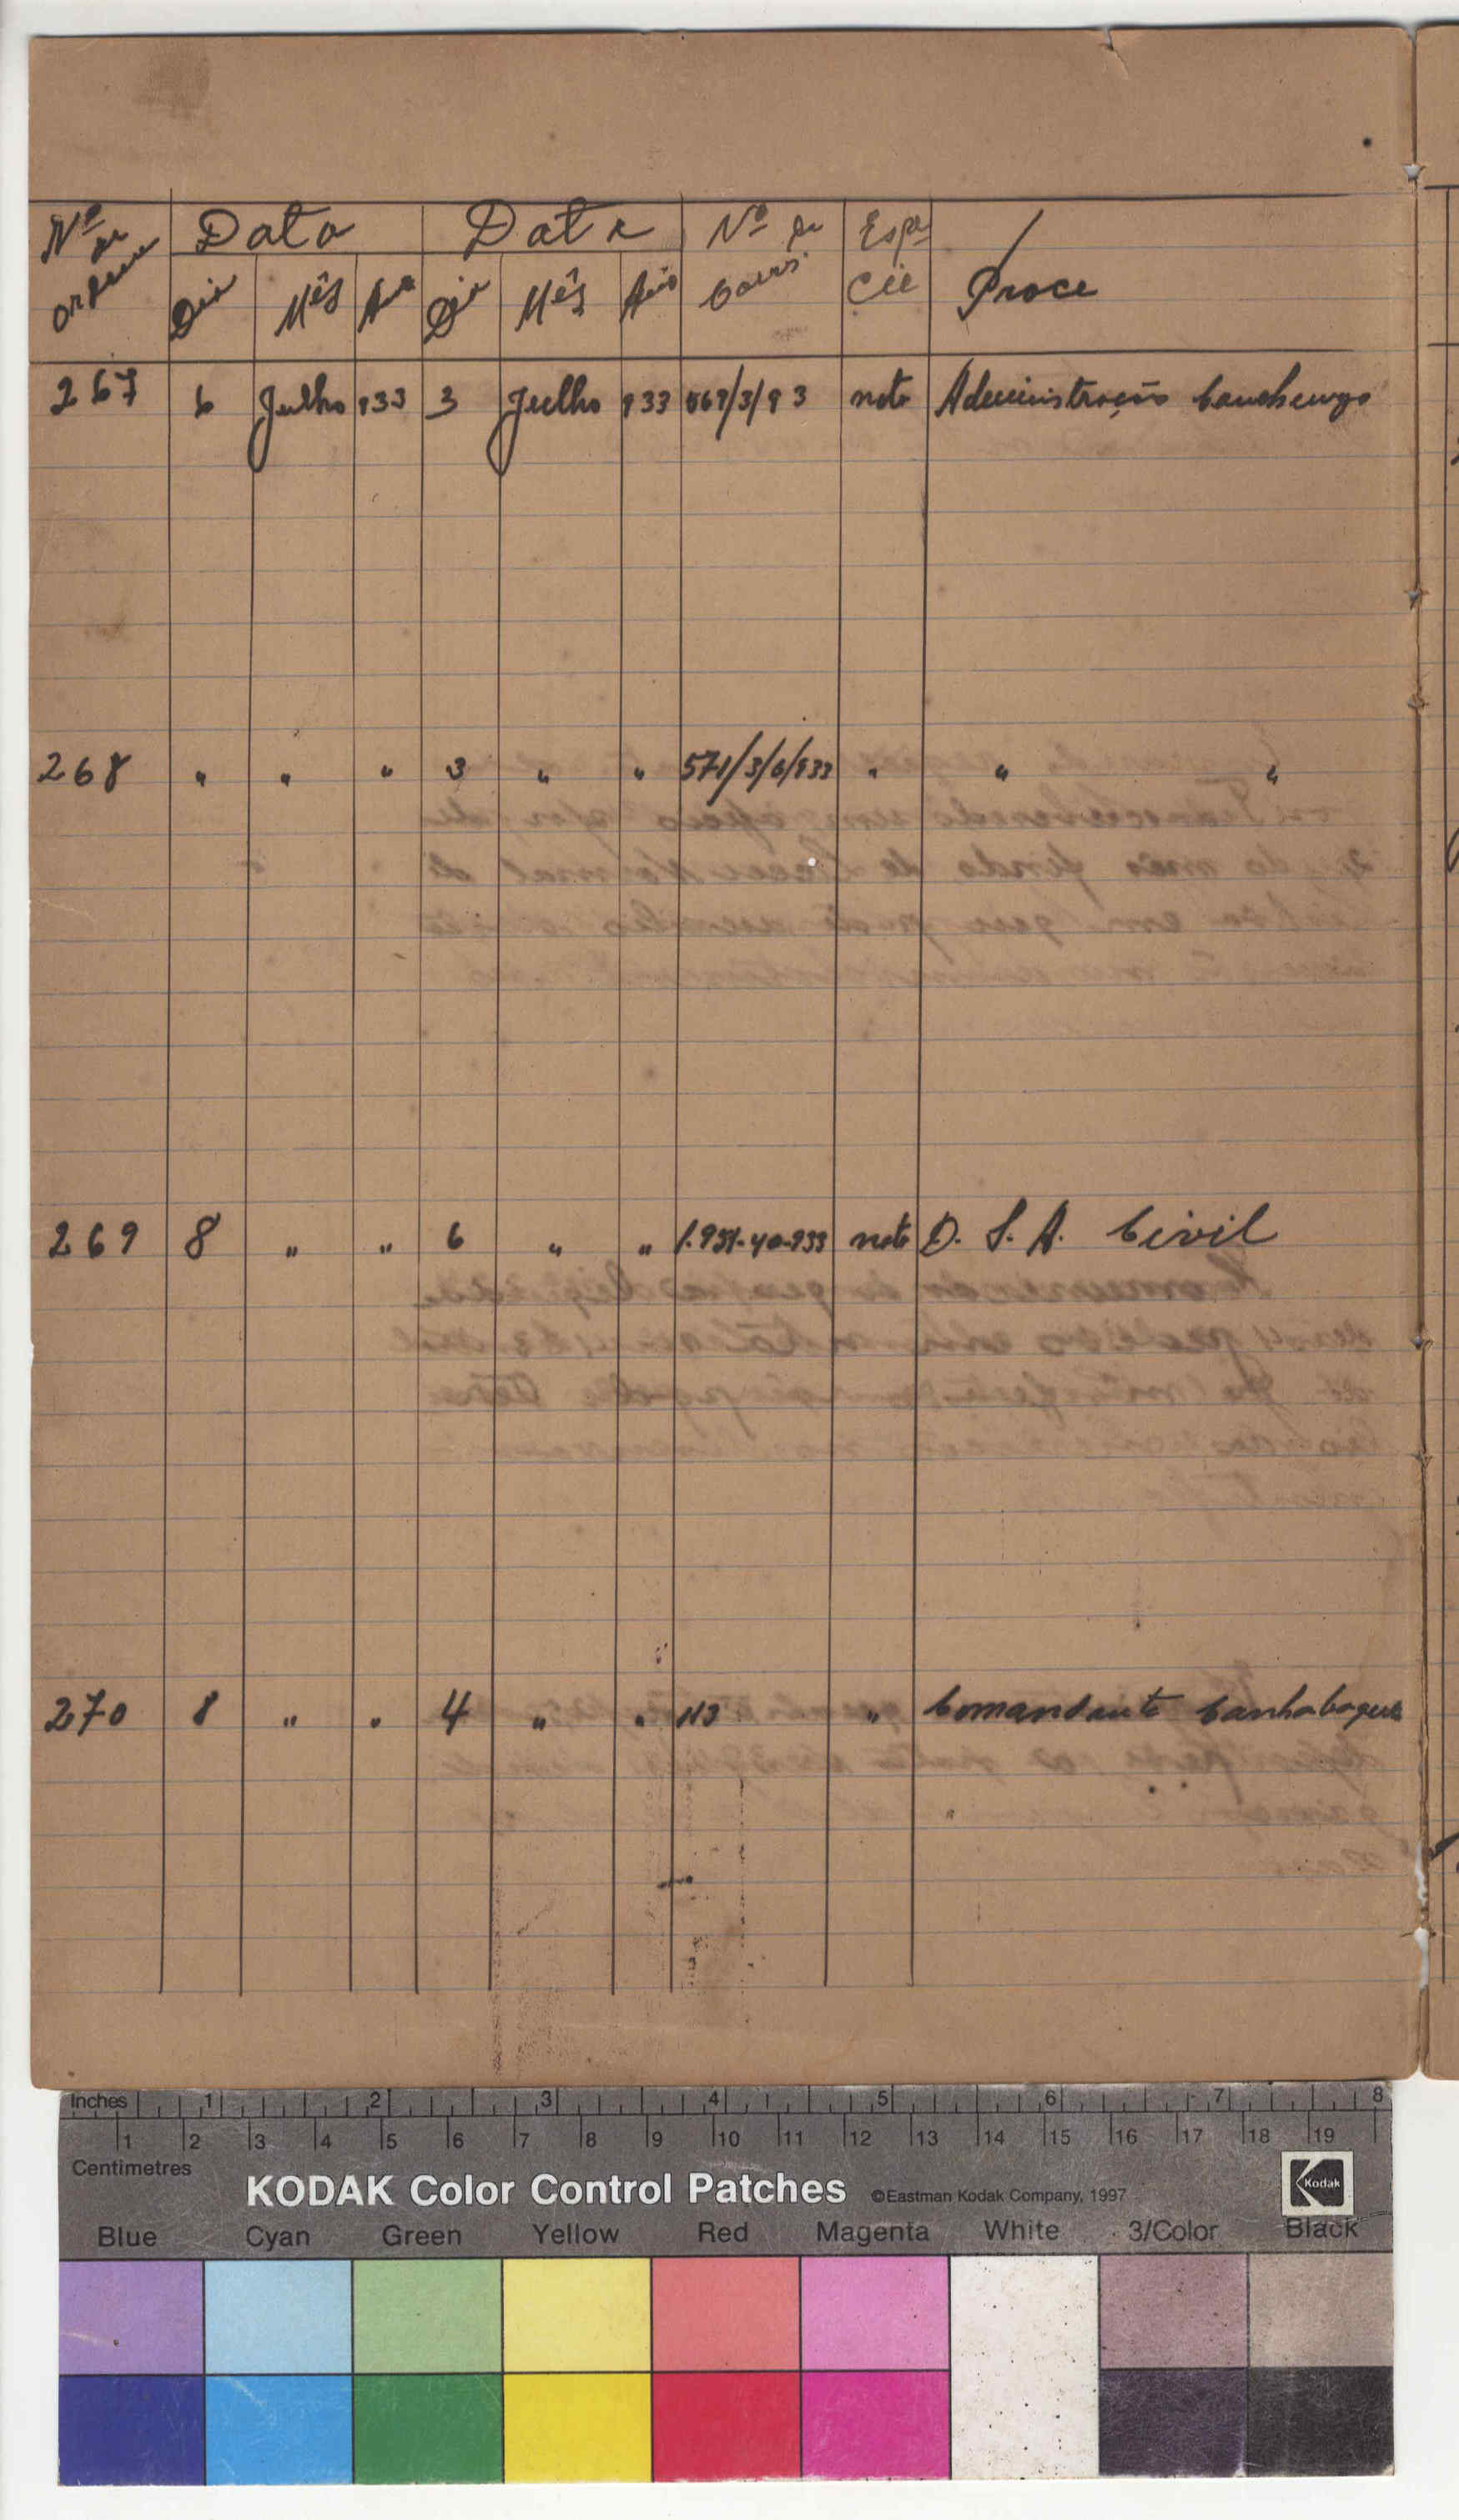 Nº de ordem Data Data Nº de Espe
cie Proce
Dia Mês Ano Dia Mês Ano
267 6 Julho 933 3 Julho 933 note Administração Canchungo
268 " " " 3 " " 571/3/6/933 " " "
269 8 " " 6 " " 1.931-40-933 note D. S. A. Civil
270 8 " " 4 " " 113 " Comandante Canhabaque
Inches 1 2 3 4 5 6 7 8
1 2 3 4 5 6 7 8 9 10 11 12 13 14 15 16 17 18 19
Centimetres
KODAK Color Control Patches ©Eastman Kodak Company, 1997 Kodak
Blue Cyan Green Yellow Red Magenta White 3/Color Black